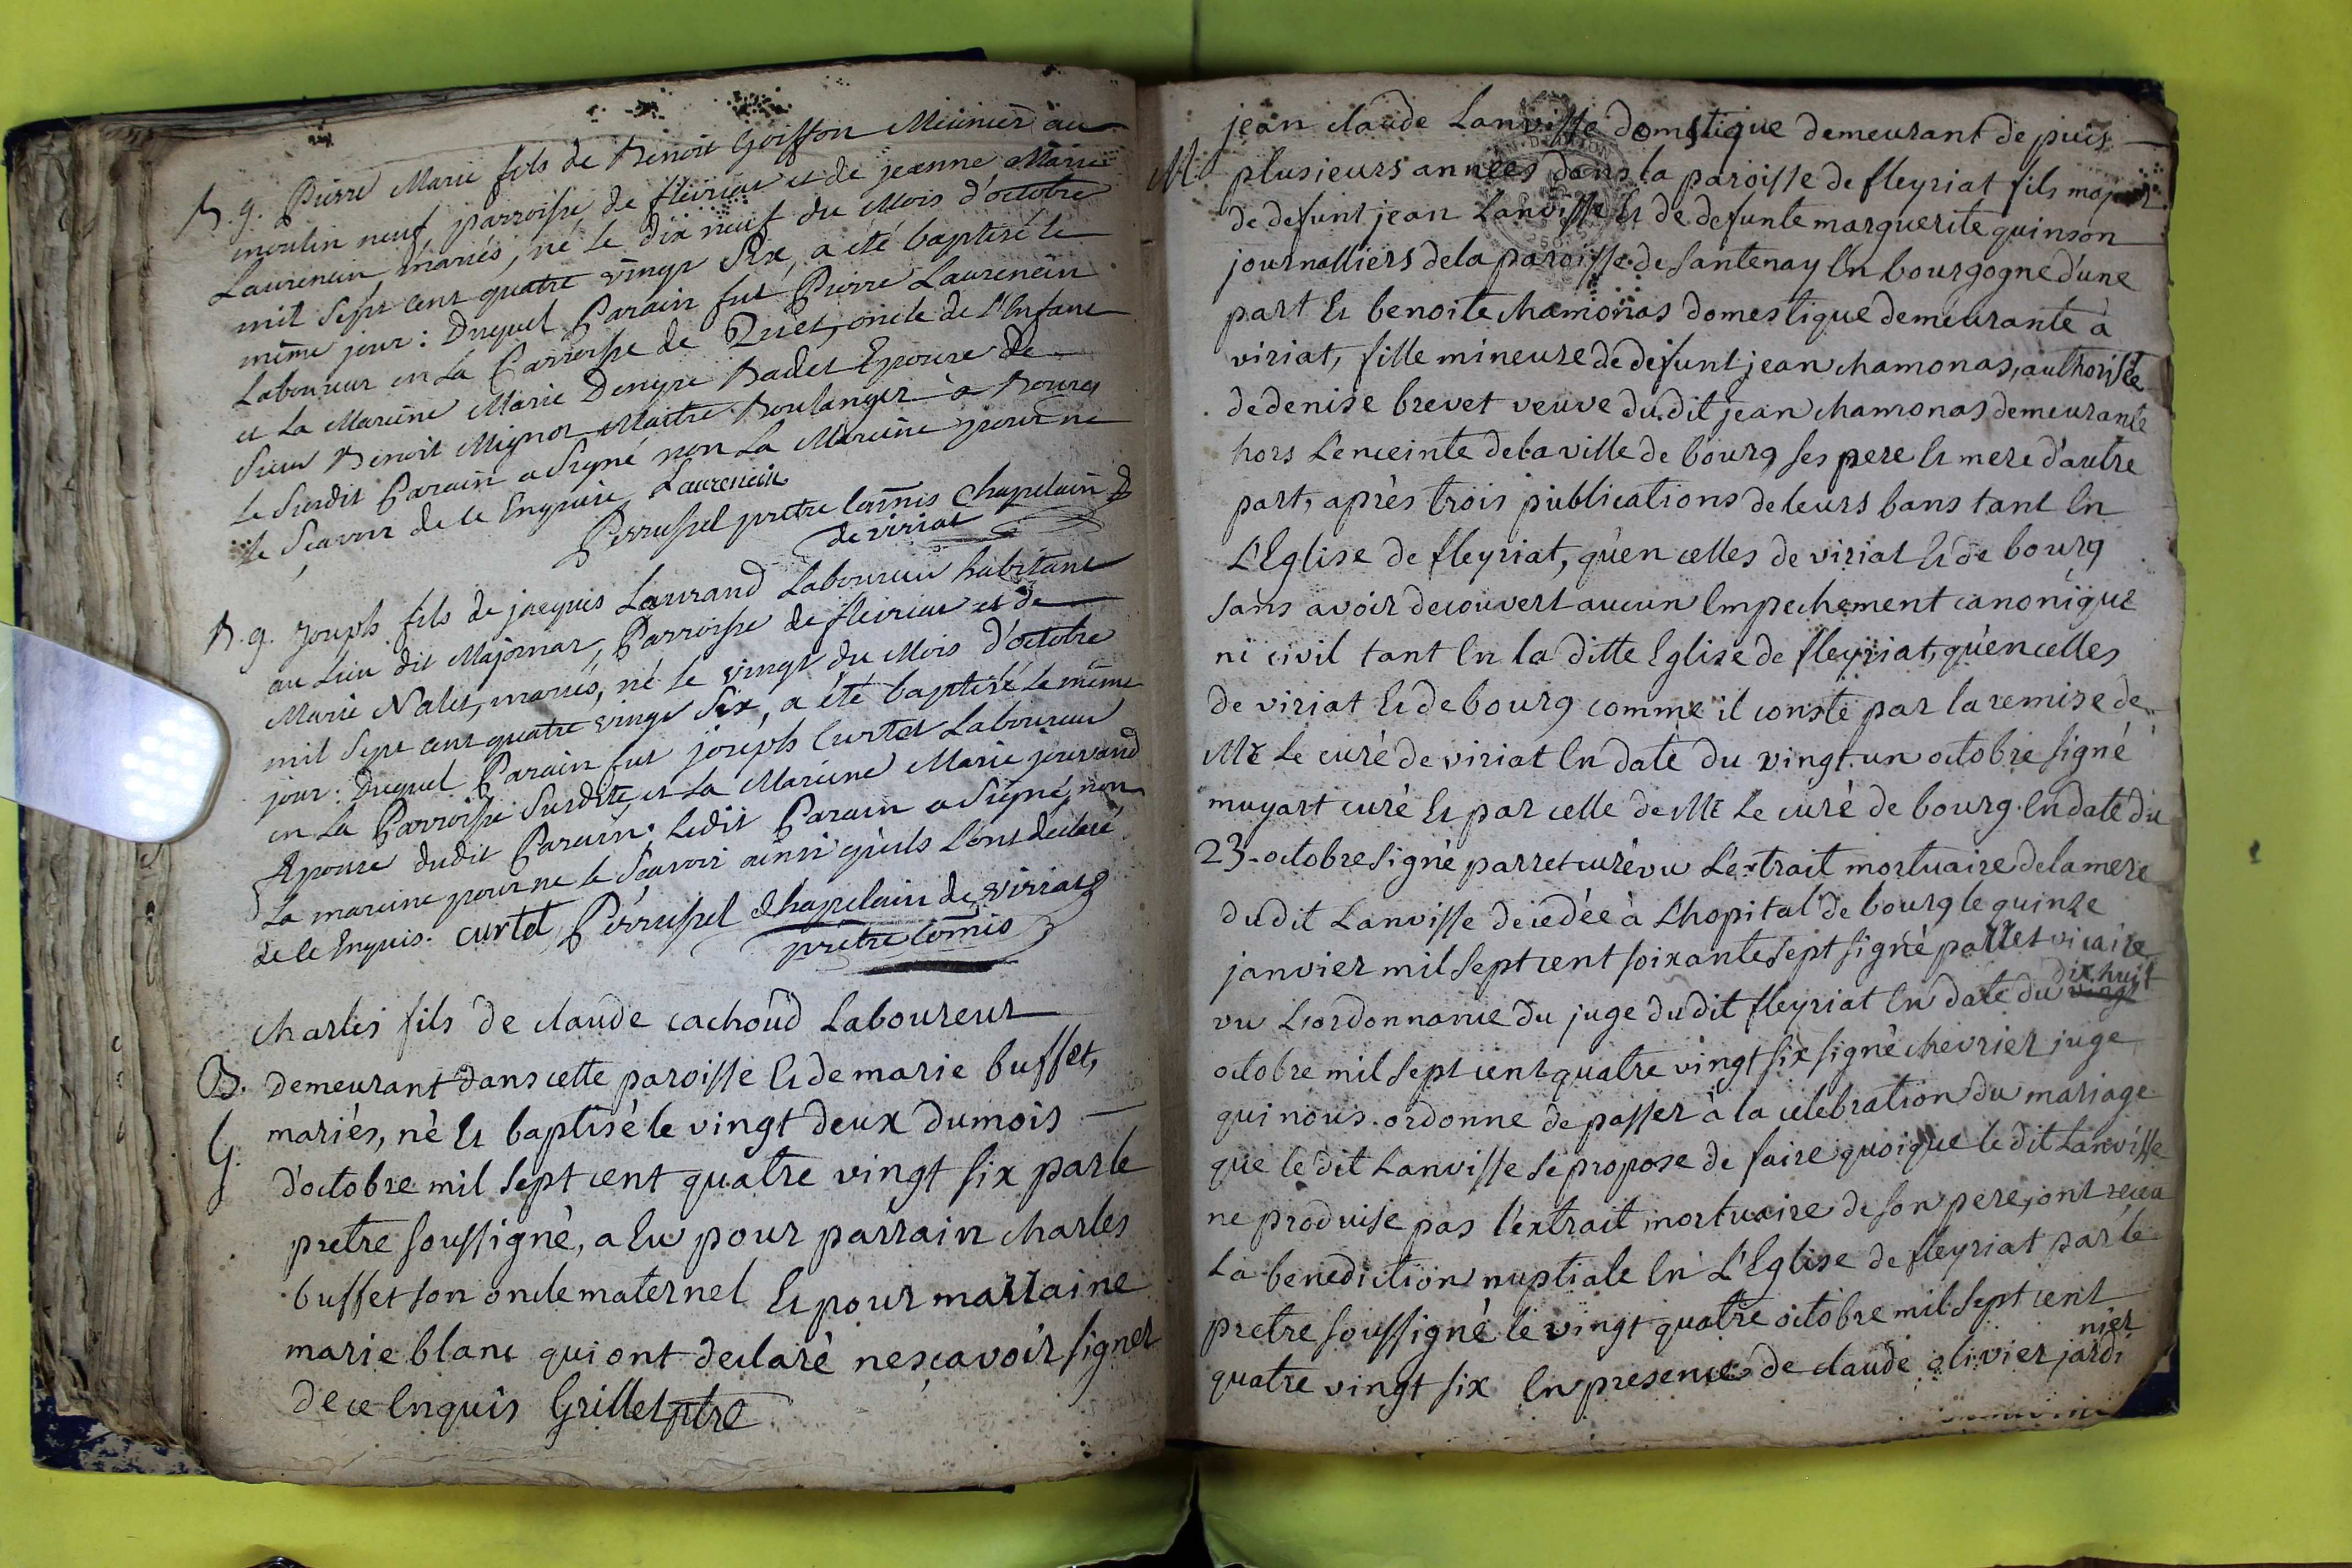 B. g. Pierre Marie fils de Benoit Goiffon Meünier au
moulin neuf, parroisse de fleiriat et de jeanne Marie
Laurencin mariés, né le dix neuf du Mois d'octobre
mil sept cent quatre vingt six, a été baptisé le
même jour: Duquel Parain fut Pierre Laurencin
Laboureur en la Parroisse de oncle de l'Enfant
et la Mareine Marie Denyse Badet Epouse de
Sieur Benoit Mignot Maitre Boulanger à Bourg
le Susdit Parain a Signé non la Mareine pour ne
le Sçavoir de ce Enquise Laurencin
Perrussel prêtre Com̃is Chapelain
de viriat
B. g. Joseph fils de jacques Laurand Laboureur habitant
au Lieu dit Majornas, Parroisse de fleiriat et de
Marie Nalet, mariés, né le vingt du Mois d'octobre
mil sept cent quatre vingt six, a été baptisé le même
jour: Duquel Parain fut joseph Curtet Laboureur
en la Parroisse Susdite, et la Mareine Marie jouvand
Epouse dudit Parain. Ledit Parain a Signé, non
la mareine pour ne le Sçavoir ainsi qu'ils l'ont declaré
de ce Enquis. curtet Perrussel Chapelain de viriat
prêtre com̃is
charles fils de claude cachoud Laboureur
B. demeurant dans cette paroisse Et de marie buffet,
G. mariés, né Et baptisé le vingt deux du mois
d'octobre mil sept cent quatre vingt six par le
pretre soussigné, a Eu pour parrain charles
buffet son oncle maternel Et pour marraine
marie blanc qui ont declaré ne sçavoir signer
de ce Enquis Grillet ptre
jean claude Lanvisse domstique demeurant depuis
M. plusieurs années dans la paroisse de fleyriat fils majeur
de defunt jean Lanvisse Et de defunte marguerite quinson
journalliers de la paroisse de Santenay En bourgogne d'une
part Et benoite chamonas domestique demeurante à
viriat, fille mineure de defunt jean chamonas, authorisée
de denise brevet veuve du dit jean chamonas demeurante
hors l'enceinte de la ville de bourg ses pere Et mere d'autre
part, après trois publications de leurs bans tant En
L'Eglise de fleyriat, qu'en celles de viriat Et de bourg
sans avoir decouvert aucun Empechement canonique
ni civil tant En la ditte Eglise de fleyriat, qu'en celles
de viriat Et de bourg comme il conste par la remise de
Mr Le curé de viriat En date du vingt-un octobre signé
muyart curé Et par celle de Mr Le curé de bourg En date du
23 octobre signé parret curé vu L'extrait mortuaire de la mere
du dit Lanvisse decedée à L'hopital de bourg le quinze
janvier mil sept cent soixante sept signé parret vicaire
dix huit
vu L'ordonnance du juge du dit fleyriat En date du vingt
octobre mil sept cent quatre vingt six signé chevrier juge
qui nous ordonne de passer à la celebration du mariage
que le dit Lanvisse se propose de faire quoique le dit Lanvisse
ne produise pas l'extrait mortuaire de son pere, ont receu
La benediction nuptiale En L'Eglise de fleyriat par le
pretre soussigné le vingt quatre octobre mil sept cent
nier
quatre vingt six En presence de claude olivier jardi